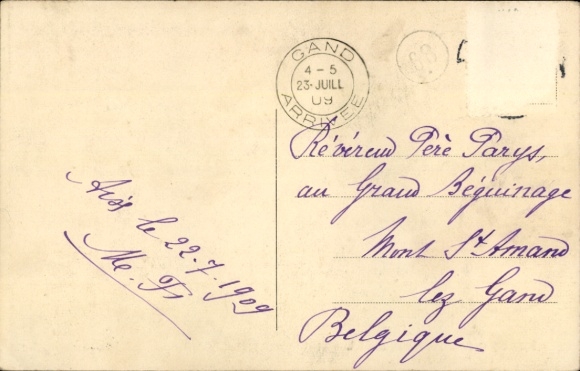 GAND
4 - 5
23. JUILL
09
ARRIVÉE
le 22.7.1909
Révérend Père Parys,
au Grand Béguinage
Mont St Amand
lez Gand
Belgique